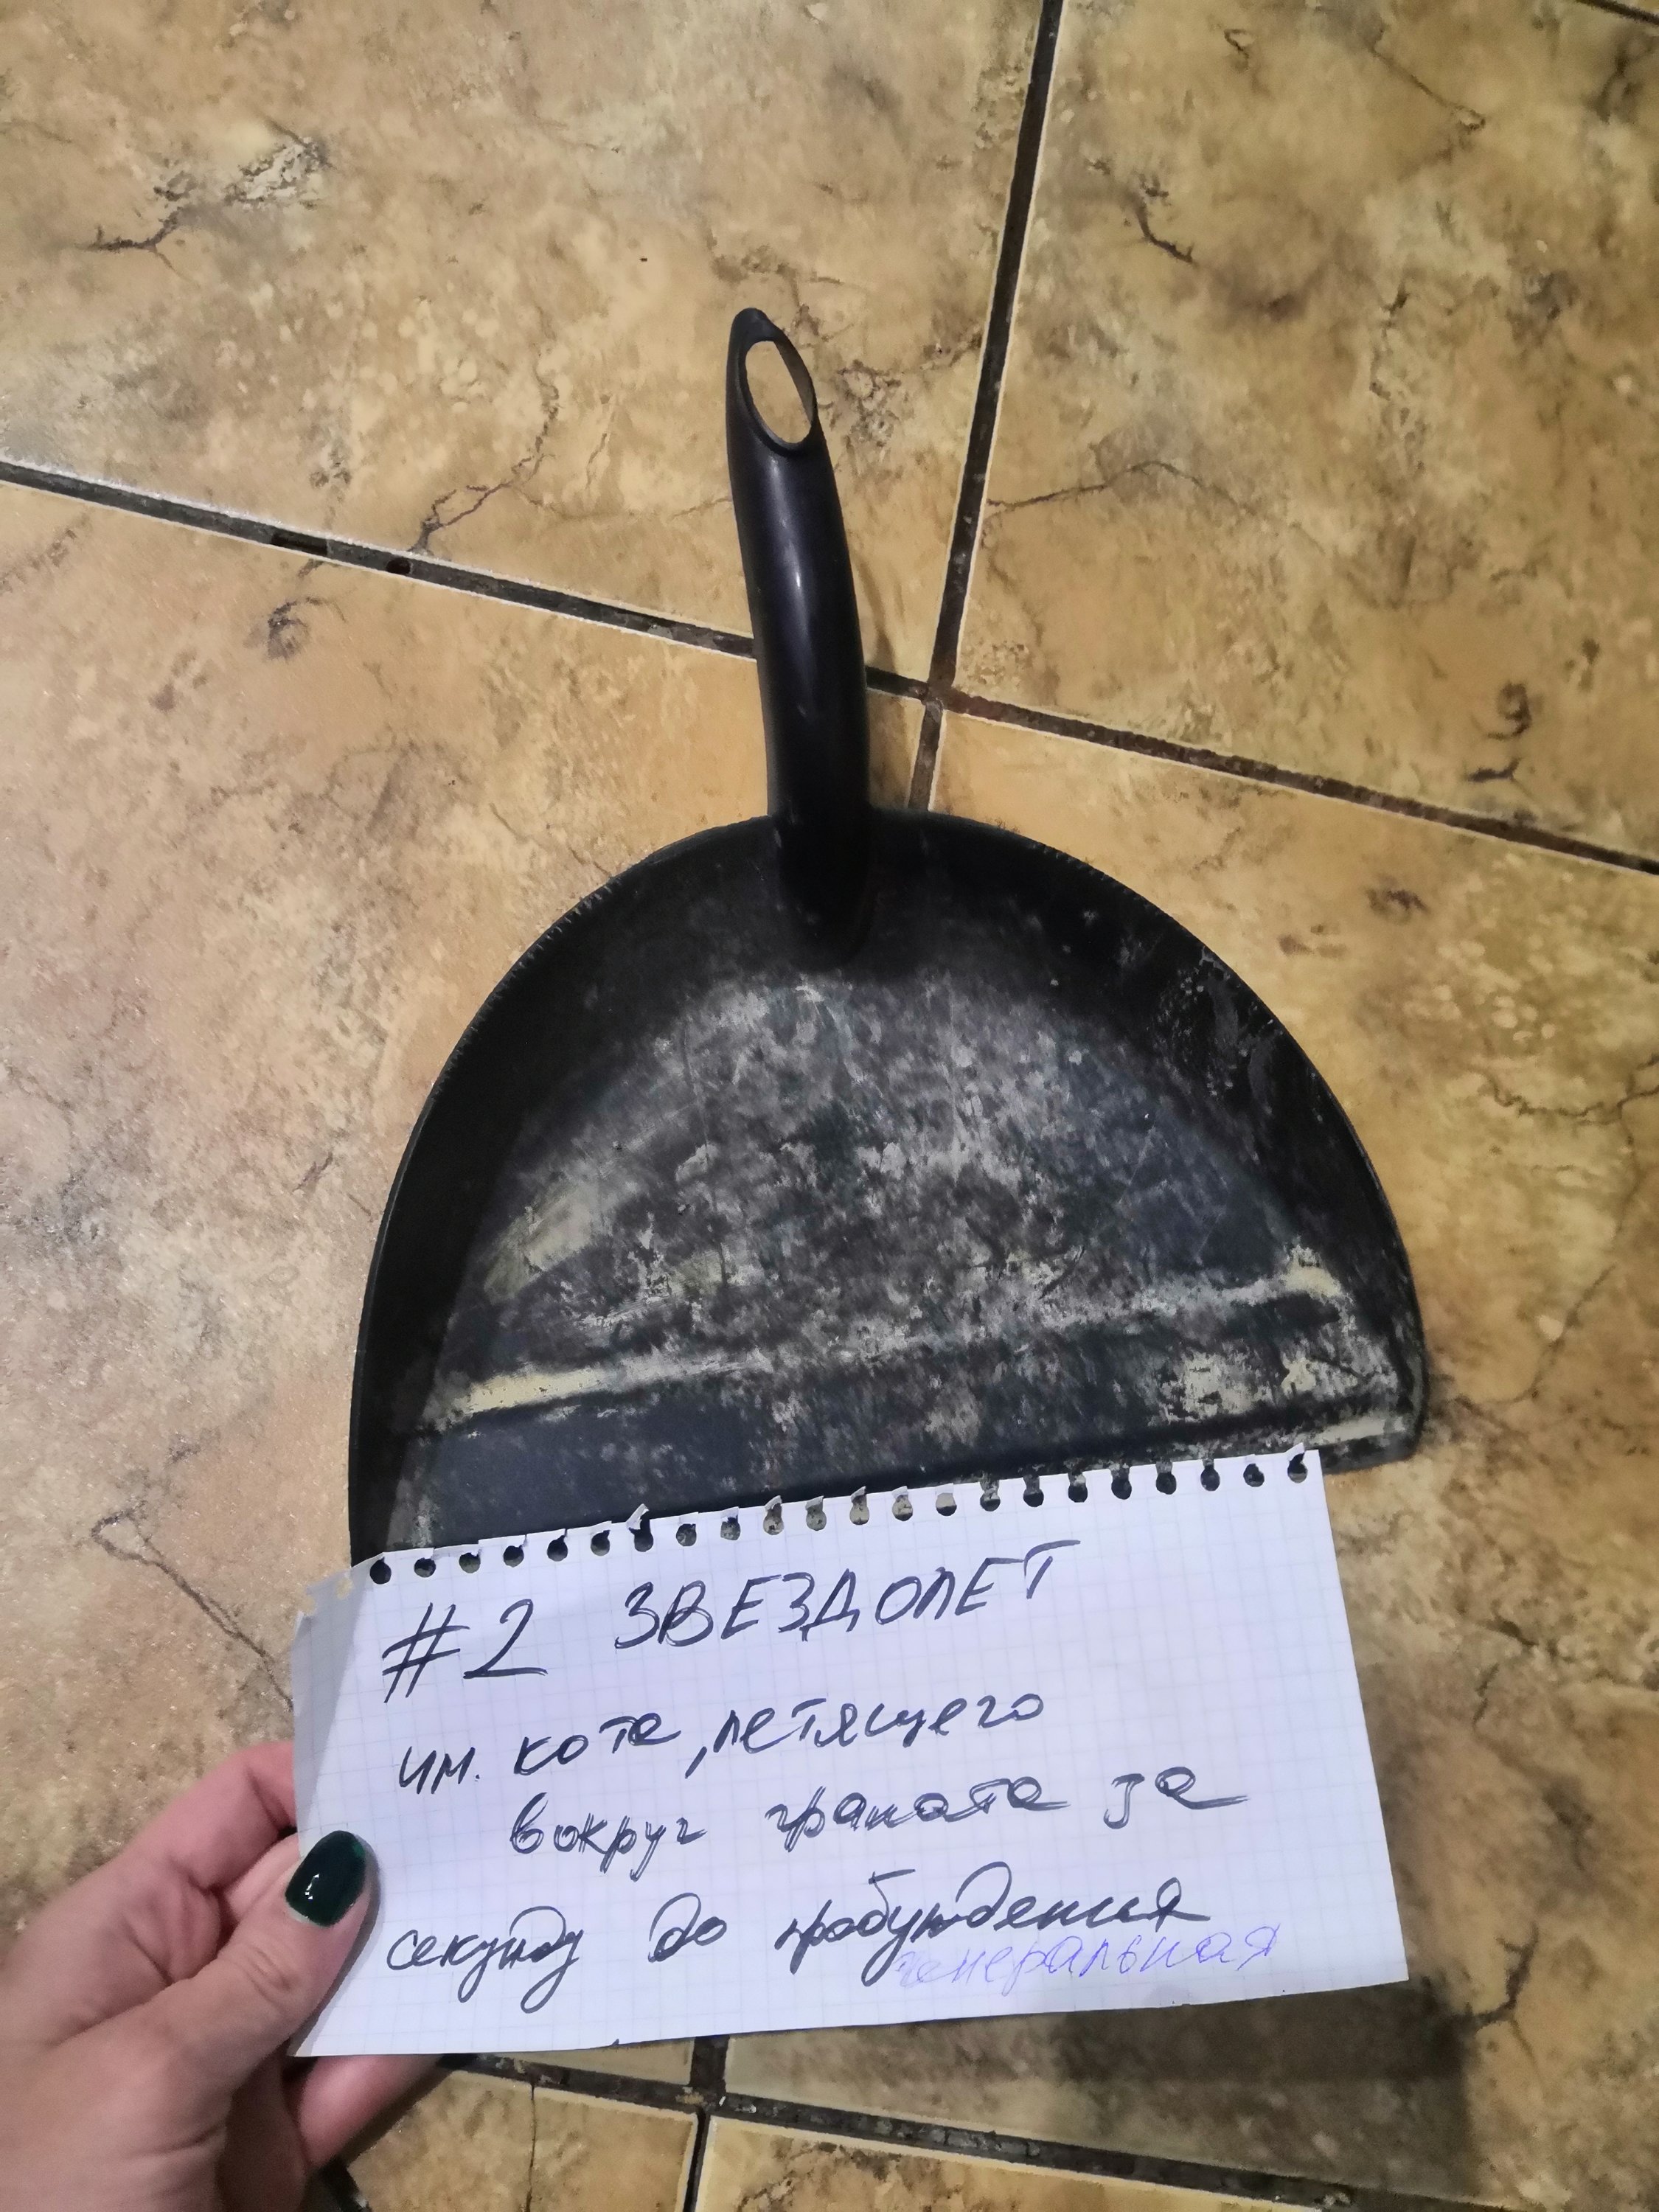 #2 ЗВЕЗДОЛЕТ
им. кота, летящего
вокруг граната за
секунду до пробуждения
генеральная